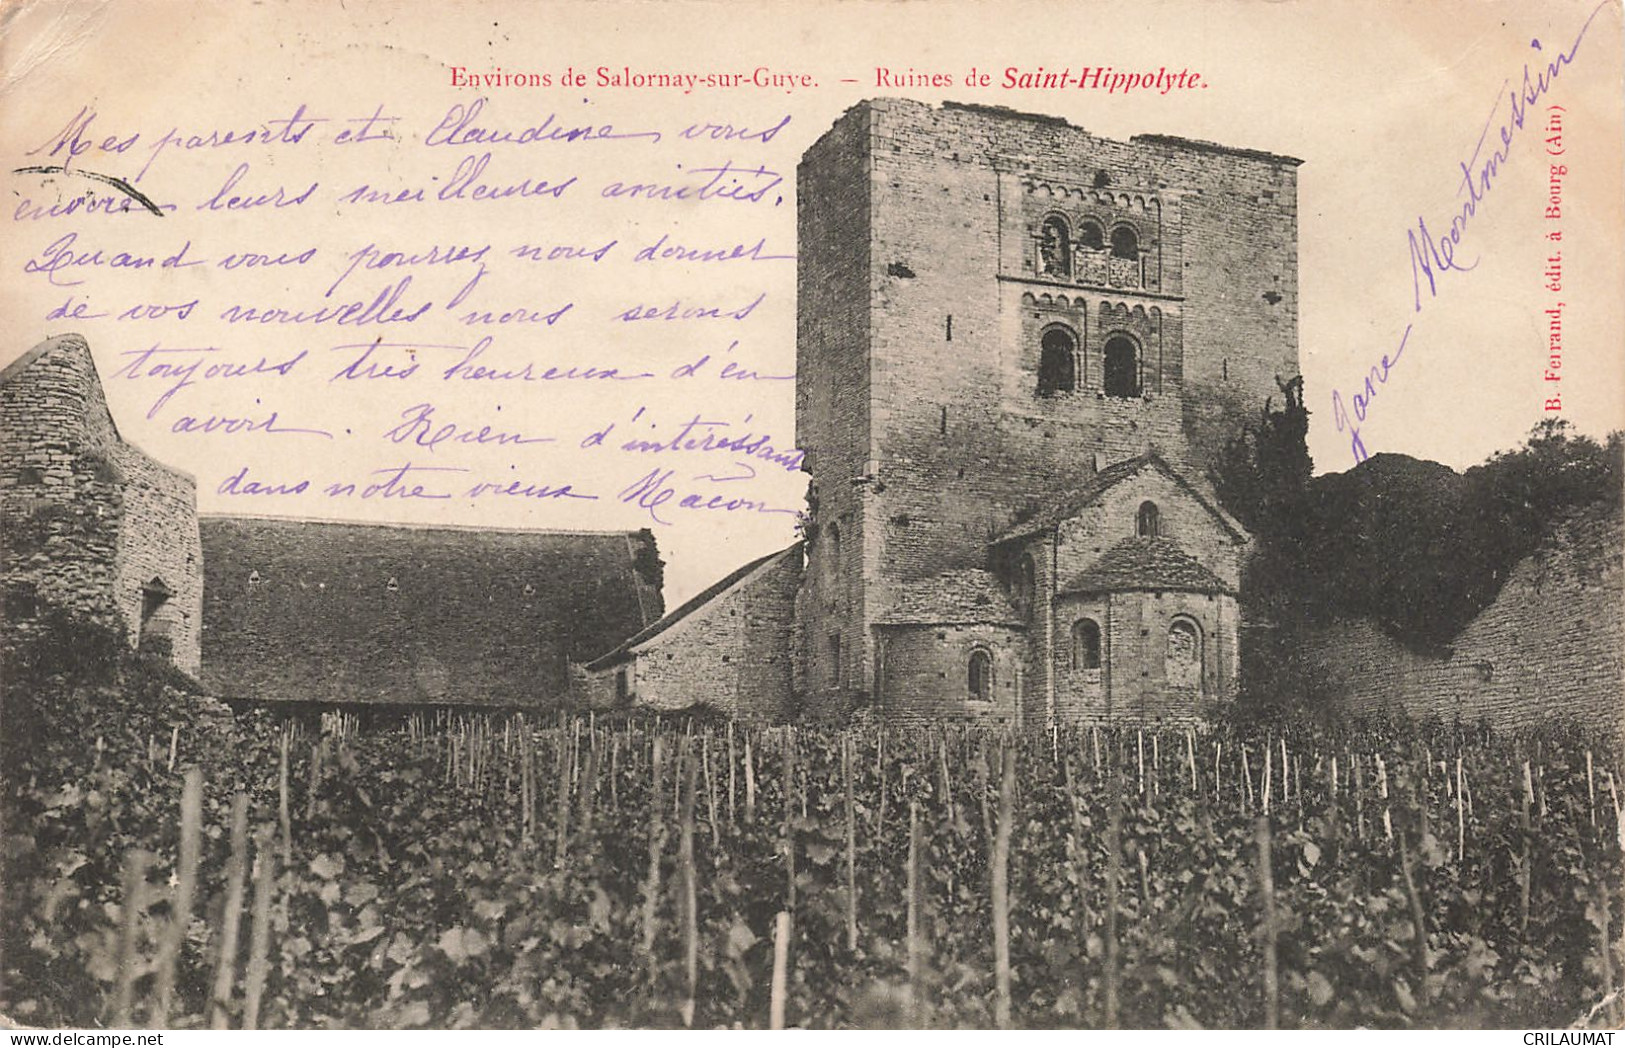 Environs de Salornay-sur-Guye. — Ruines de Saint-Hippolyte.
Mes parents et Claudine vous
envoie leurs meilleures amitiés.
Quand vous pourrez nous donner
de vos nouvelles nous serons
toujours très heureux d'en
avoir. Rien d'intéréssant
dans notre vieux Mâcon
Jane Montmessin
B. Ferrand, édit. à Bourg (Ain)
CRILAUMAT